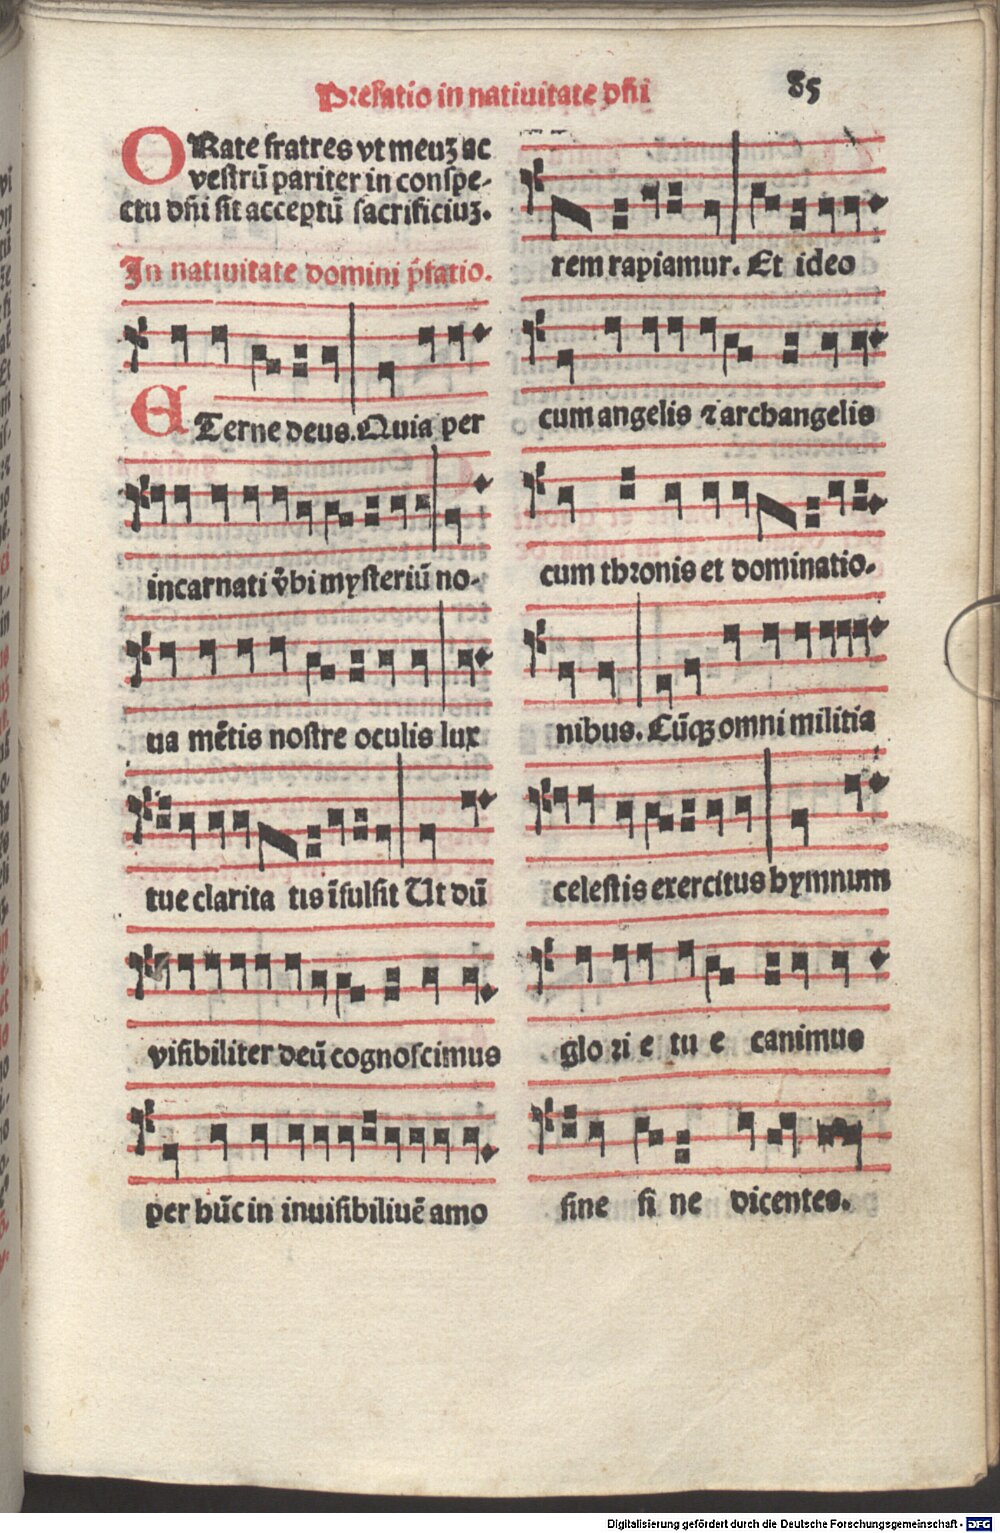 Prefatio in natiuitate dñi
85
ORate fratres vt meuꝫ ac
vestrū pariter in conspe-
ctu dñi sit acceptū sacrificiuꝫ.
In natiuitate domini p̄fatio.
ETerne deus. Quia per
incarnati v̄bi mysteriū no-
ua mētis nostre oculis lux
tue clarita tis īfulsit Ut dū
visibiliter deū cognoscimus
per hūc in inuisibiliuē amo
rem rapiamur. Et ideo
cum angelis ⁊ archangelis
cum thronis et dominatio-
nibus. Cūqꝫ omni militia
celestis exercitus hymnum
glo ri e tu e canimus
sine fi ne dicentes.
Digitalisierung gefördert durch die Deutsche Forschungsgemeinschaft - DFG